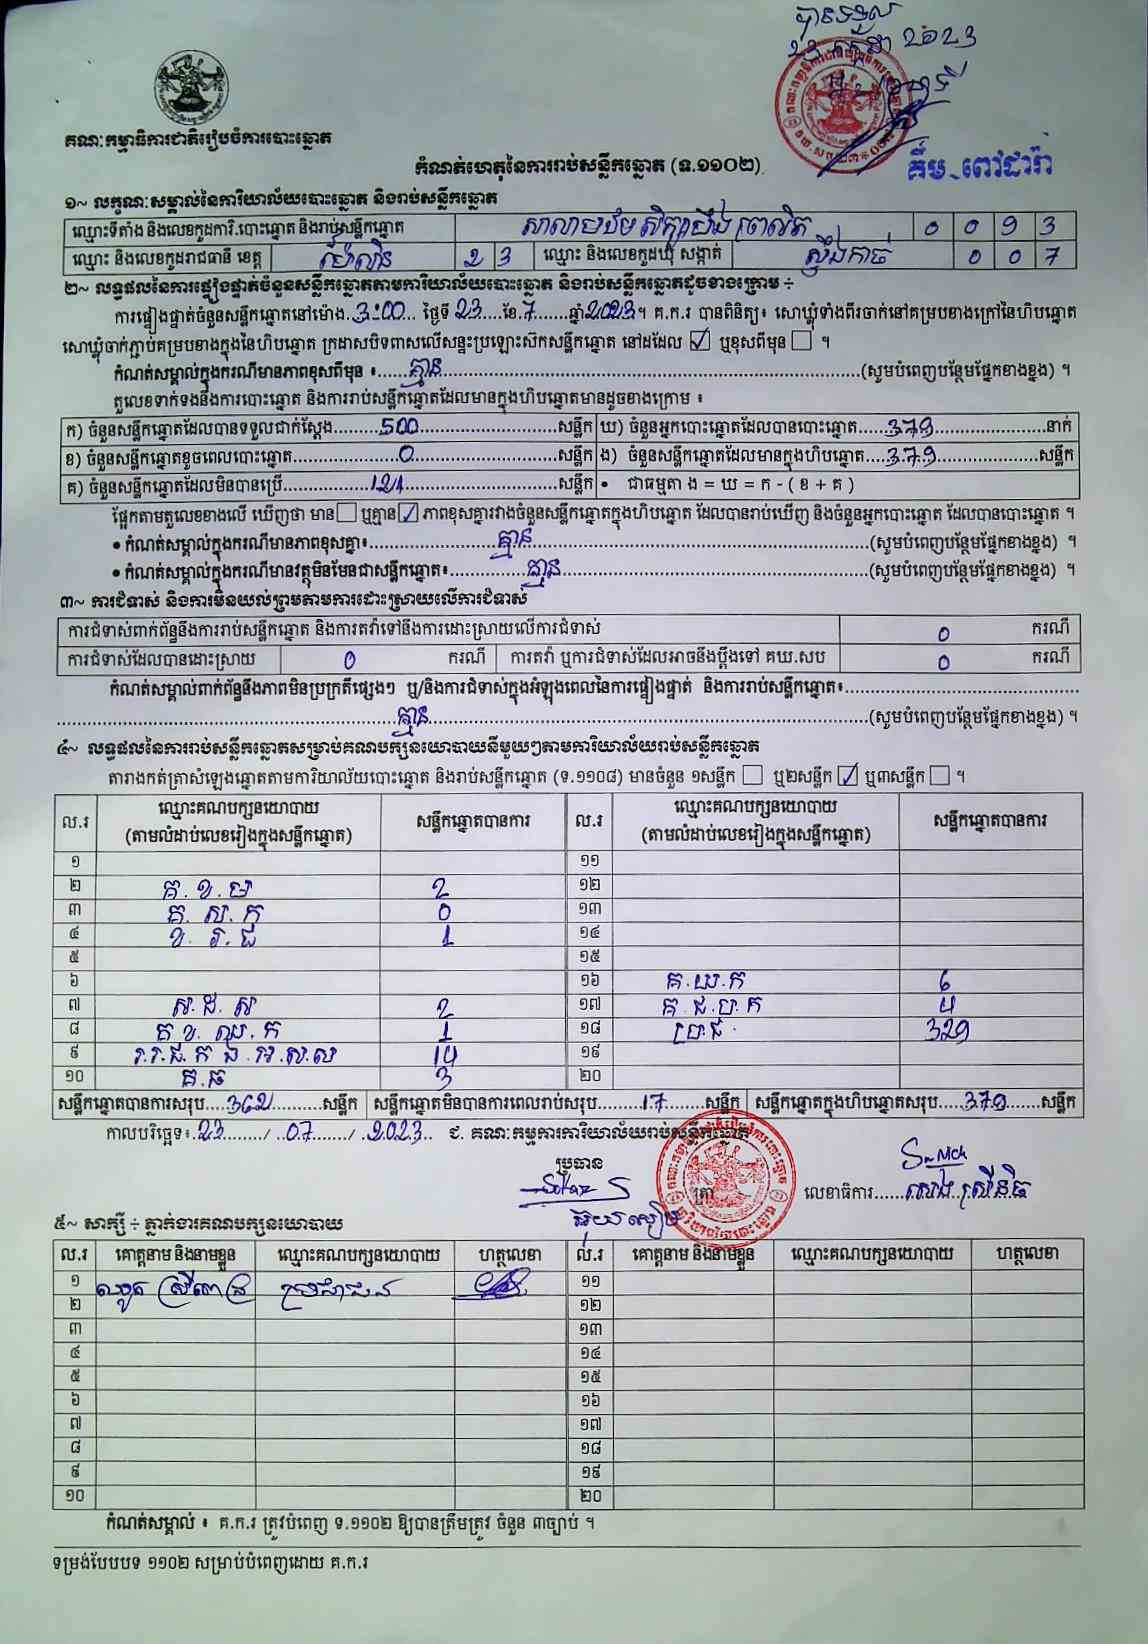 បានទទួល
២៣ កក្កដា ២០២៣
គឹម ពៅដារ៉ា
គណៈកម្មាធិការជាតិរៀបចំការបោះឆ្នោត
កំណត់ហេតុនៃការរាប់សន្លឹកឆ្នោត (ទ.១១០២)
១~ លក្ខណៈសម្គាល់នៃការិយាល័យបោះឆ្នោត និងរាប់សន្លឹកឆ្នោត
ឈ្មោះទីតាំង និងលេខកូដការិ.បោះឆ្នោត និងរាប់សន្លឹកឆ្នោត 0 0 9 3
ឈ្មោះ និងលេខកូដរាជធានី ខេត្ត ប៉ៃលិន 2 3 ឈ្មោះ និងលេខកូដឃុំ សង្កាត់ ស្ទឹងកាច់ 0 0 7
២~ លទ្ធផលនៃការផ្ទៀងផ្ទាត់ចំនួនសន្លឹកឆ្នោតតាមការិយាល័យបោះឆ្នោត និងរាប់សន្លឹកឆ្នោតដូចខាងក្រោម ÷
ការផ្ទៀងផ្ទាត់ចំនួនសន្លឹកឆ្នោតនៅម៉ោង.3:00... ថ្ងៃទី 23....ខែ.7.......ឆ្នាំ2023។ គ.ក.រ បានពិនិត្យ៖ សោឃ្លុំទាំងពីរចាក់នៅគម្របខាងក្រៅនៃហិបឆ្នោត
សោឃ្លុំចាក់ភ្ជាប់គម្របខាងក្នុងនៃហិបឆ្នោត ក្រដាសបិទពាសលើសន្ទះប្រឡោះស៊កសន្លឹកឆ្នោត នៅដដែល ☑ ឬខុសពីមុន ☐ ។
កំណត់សម្គាល់ក្នុងករណីមានភាពខុសពីមុន ៖......គ្មាន......(សូមបំពេញបន្ថែមផ្នែកខាងខ្នង) ។
តួលេខទាក់ទងនឹងការបោះឆ្នោត និងការរាប់សន្លឹកឆ្នោតដែលមានក្នុងហិបឆ្នោតមានដូចខាងក្រោម ៖
ក) ចំនួនសន្លឹកឆ្នោតដែលបានទទួលជាក់ស្តែង.........500......សន្លឹក ឃ) ចំនួនអ្នកបោះឆ្នោតដែលបានបោះឆ្នោត.....379......នាក់
ខ) ចំនួនសន្លឹកឆ្នោតខូចពេលបោះឆ្នោត......0......សន្លឹក ង) ចំនួនសន្លឹកឆ្នោតដែលមានក្នុងហិបឆ្នោត....379......សន្លឹក
គ) ចំនួនសន្លឹកឆ្នោតដែលមិនបានប្រើ......121......សន្លឹក • ជាធម្មតា ង = ឃ = ក - ( ខ + គ )
ផ្អែកតាមតួលេខខាងលើ ឃើញថា មាន ☐ ឬគ្មាន ☑ ភាពខុសគ្នារវាងចំនួនសន្លឹកឆ្នោតក្នុងហិបឆ្នោត ដែលបានរាប់ឃើញ និងចំនួនអ្នកបោះឆ្នោត ដែលបានបោះឆ្នោត ។
• កំណត់សម្គាល់ក្នុងករណីមានភាពខុសគ្នា៖......គ្មាន......(សូមបំពេញបន្ថែមផ្នែកខាងខ្នង) ។
• កំណត់សម្គាល់ក្នុងករណីមានវត្ថុមិនមែនជាសន្លឹកឆ្នោត៖......គ្មាន......(សូមបំពេញបន្ថែមផ្នែកខាងខ្នង) ។
៣~ ការជំទាស់ និងការមិនយល់ព្រមតាមការដោះស្រាយលើការជំទាស់
ការជំទាស់ពាក់ព័ន្ធនឹងការរាប់សន្លឹកឆ្នោត និងការតវ៉ាទៅនឹងការដោះស្រាយលើការជំទាស់ 0 ករណី
ការជំទាស់ដែលបានដោះស្រាយ 0 ករណី ការតវ៉ា ឬការជំទាស់ដែលអាចនឹងប្តឹងទៅ គឃ.សប 0 ករណី
កំណត់សម្គាល់ពាក់ព័ន្ធនឹងភាពមិនប្រក្រតីផ្សេងៗ ឬ/និងការជំទាស់ក្នុងអំឡុងពេលនៃការផ្ទៀងផ្ទាត់ និងការរាប់សន្លឹកឆ្នោត៖......
......គ្មាន......(សូមបំពេញបន្ថែមផ្នែកខាងខ្នង) ។
៤~ លទ្ធផលនៃការរាប់សន្លឹកឆ្នោតសម្រាប់គណបក្សនយោបាយនីមួយៗតាមការិយាល័យរាប់សន្លឹកឆ្នោត
តារាងកត់ត្រាសំឡេងឆ្នោតតាមការិយាល័យបោះឆ្នោត និងរាប់សន្លឹកឆ្នោត (ទ.១១០៨) មានចំនួន ១សន្លឹក ☐ ឬ២សន្លឹក ☑ ឬ៣សន្លឹក ☐ ។
ល.រ ឈ្មោះគណបក្សនយោបាយ (តាមលំដាប់លេខរៀងក្នុងសន្លឹកឆ្នោត) សន្លឹកឆ្នោតបានការ ល.រ ឈ្មោះគណបក្សនយោបាយ (តាមលំដាប់លេខរៀងក្នុងសន្លឹកឆ្នោត) សន្លឹកឆ្នោតបានការ
១ ១១
២ គ.ខ.ម 2 ១២
៣ គ.ស.ក 0 ១៣
៤ ខ.រ.ជ 1 ១៤
៥ ១៥
៦ ១៦ គ.យ.ក 6
៧ ស.ជ.ស 2 ១៧ គ.ជ.ប.ក 4
៨ គ.ខ.ឈ.ក 1 ១៨ ប្រ.ជ. 329
៩ 14 ១៩
១០ គ.ធ 3 ២០
សន្លឹកឆ្នោតបានការសរុប....362.........សន្លឹក សន្លឹកឆ្នោតមិនបានការពេលរាប់សរុប.........17.......សន្លឹក សន្លឹកឆ្នោតក្នុងហិបឆ្នោតសរុប....379.......សន្លឹក
កាលបរិច្ឆេទ៖.23......../ ..07......./ ..2023.. ជ. គណៈកម្មការការិយាល័យរាប់សន្លឹកឆ្នោត
ប្រធាន ត្រា លេខាធិការ......
៥~ សាក្សី ÷ ភ្នាក់ងារគណបក្សនយោបាយ
ល.រ គោត្តនាម និងនាមខ្លួន ឈ្មោះគណបក្សនយោបាយ ហត្ថលេខា ល.រ គោត្តនាម និងនាមខ្លួន ឈ្មោះគណបក្សនយោបាយ ហត្ថលេខា
១ ប្រជាជន ១១
២ ១២
៣ ១៣
៤ ១៤
៥ ១៥
៦ ១៦
៧ ១៧
៨ ១៨
៩ ១៩
១០ ២០
កំណត់សម្គាល់ ៖ គ.ក.រ ត្រូវបំពេញ ទ.១១០២ ឱ្យបានត្រឹមត្រូវ ចំនួន ៣ច្បាប់ ។
ទម្រង់បែបបទ ១១០២ សម្រាប់បំពេញដោយ គ.ក.រ